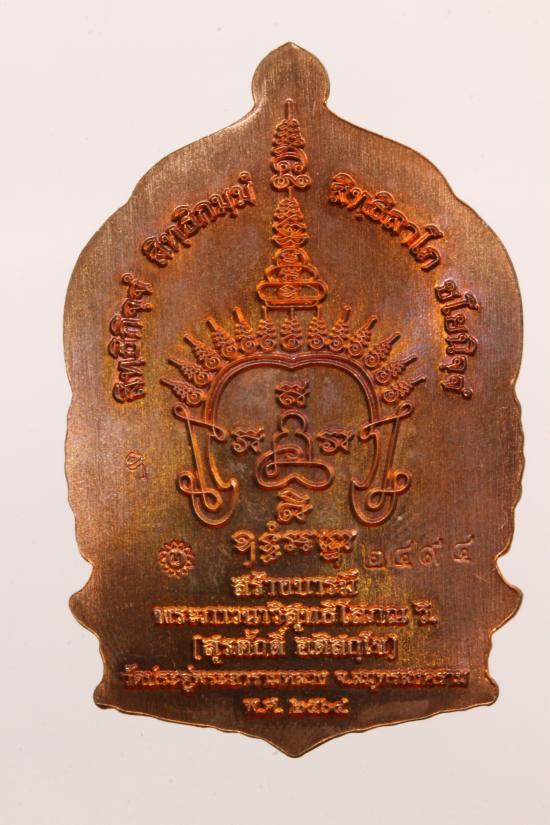 สิทฺธิกิจฺจํ สิทฺธิกมฺมํ สิทฺธิลาโภ ชโยนิจฺจํ
๒๔๙๔
สร้างบารมี
พระภาวนาวิสุทธิโสภณ วิ.
(สุรศักดิ์ อติสกฺโข)
วัดประดู่พระอารามหลวง จ.สมุทรสงคราม
พ.ศ. ๒๕๖๔